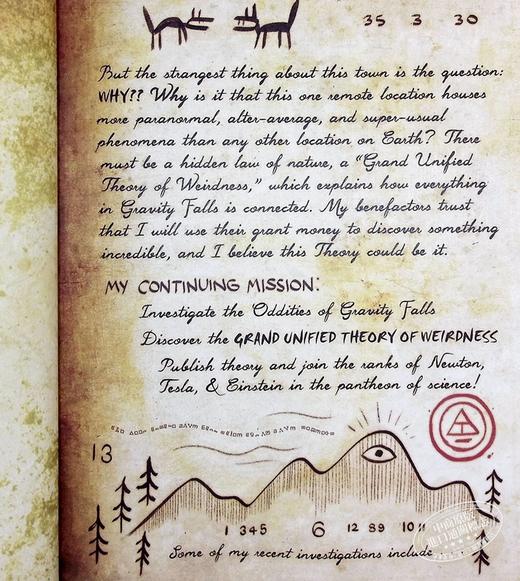 35 3 30
But the strangest thing about this town is the question:
WHY?? Why is it that this one remote location houses
more paranormal, alter-average, and super-usual
phenomena than any other location on Earth? There
must be a hidden law of nature, a "Grand Unified
Theory of Weirdness," which explains how everything
in Gravity Falls is connected. My benefactors trust
that I will use their grant money to discover something
incredible, and I believe this Theory could be it.
MY CONTINUING MISSION:
Investigate the Oddities of Gravity Falls
Discover the GRAND UNIFIED THEORY OF WEIRDNESS
Publish theory and join the ranks of Newton,
Tesla, & Einstein in the pantheon of science!
13
1 345 6 12 89 10 11
Some of my recent investigations include